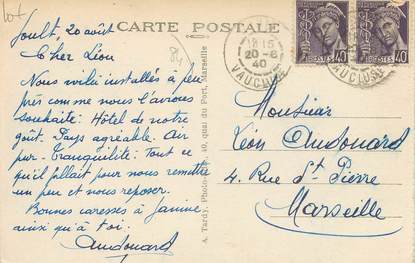 Sault, 20 août
Cher Léon
Nous voilà installés à peu
près comme nous l'avions
souhaité: Hôtel de notre
goût. Pays agréable. Air
pur. Tranquilité: Tout ce
qu'il fallait pour nous remettre
un peu et nous reposer.
Bonnes caresses à Janine
ainsi qu'à toi.
Audouard
CARTE POSTALE
A. Tardy, Photo 40, quai du Port, Marseille
15
20-8
40
VAUCLUSE
40
POSTES
40
POSTES
VAUCLUSE
Monsieur
Léon Audouard
4. Rue St Pierre
Marseille